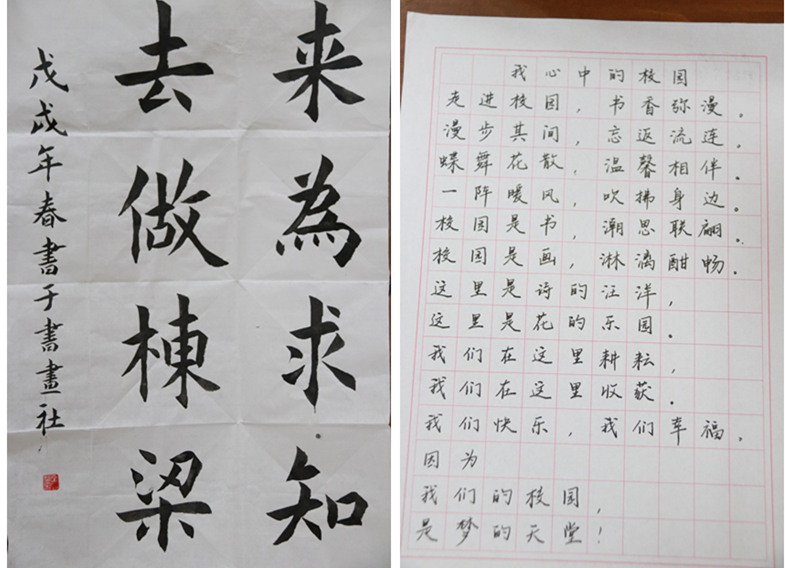 来為求知
去做棟梁
戊戌年春書于書畫社
我心中的校园
走进校园，书香弥漫。
漫步其间，忘返流连。
蝶舞花散，温馨相伴。
一阵暖风，吹拂身边。
校园是书，潮思联翩。
校园是画，淋漓酣畅。
这里是诗的汪洋，
这里是花的乐园。
我们在这里耕耘，
我们在这里收获。
我们快乐，我们幸福。
因为
我们的校园，
是梦的天堂！